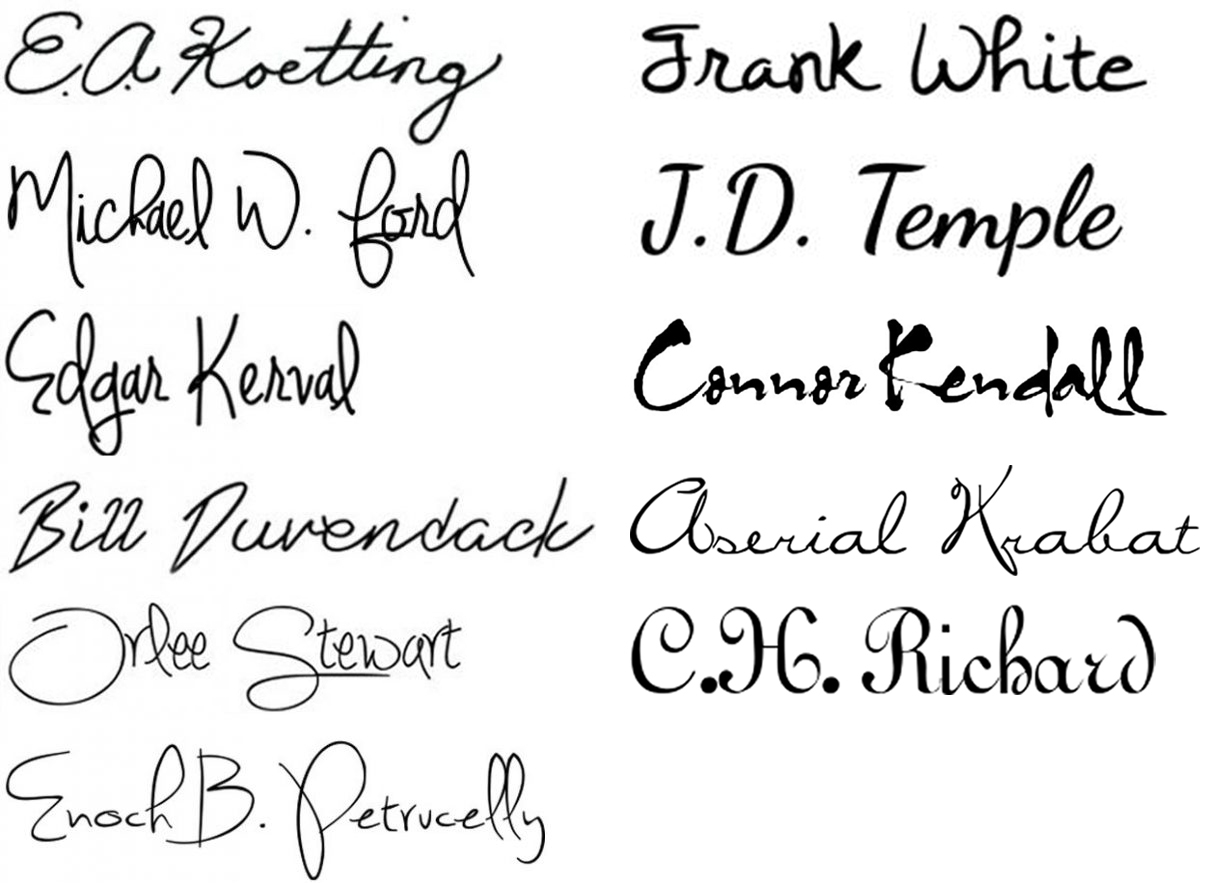 E.A. Koetting
Michael W. Ford
Edgar Kerval
Bill Duvendack
Orlee Stewart
Enoch B. Petrucelly
Frank White
J.D. Temple
Connor Kendall
Aserial Krabat
C.H. Richard